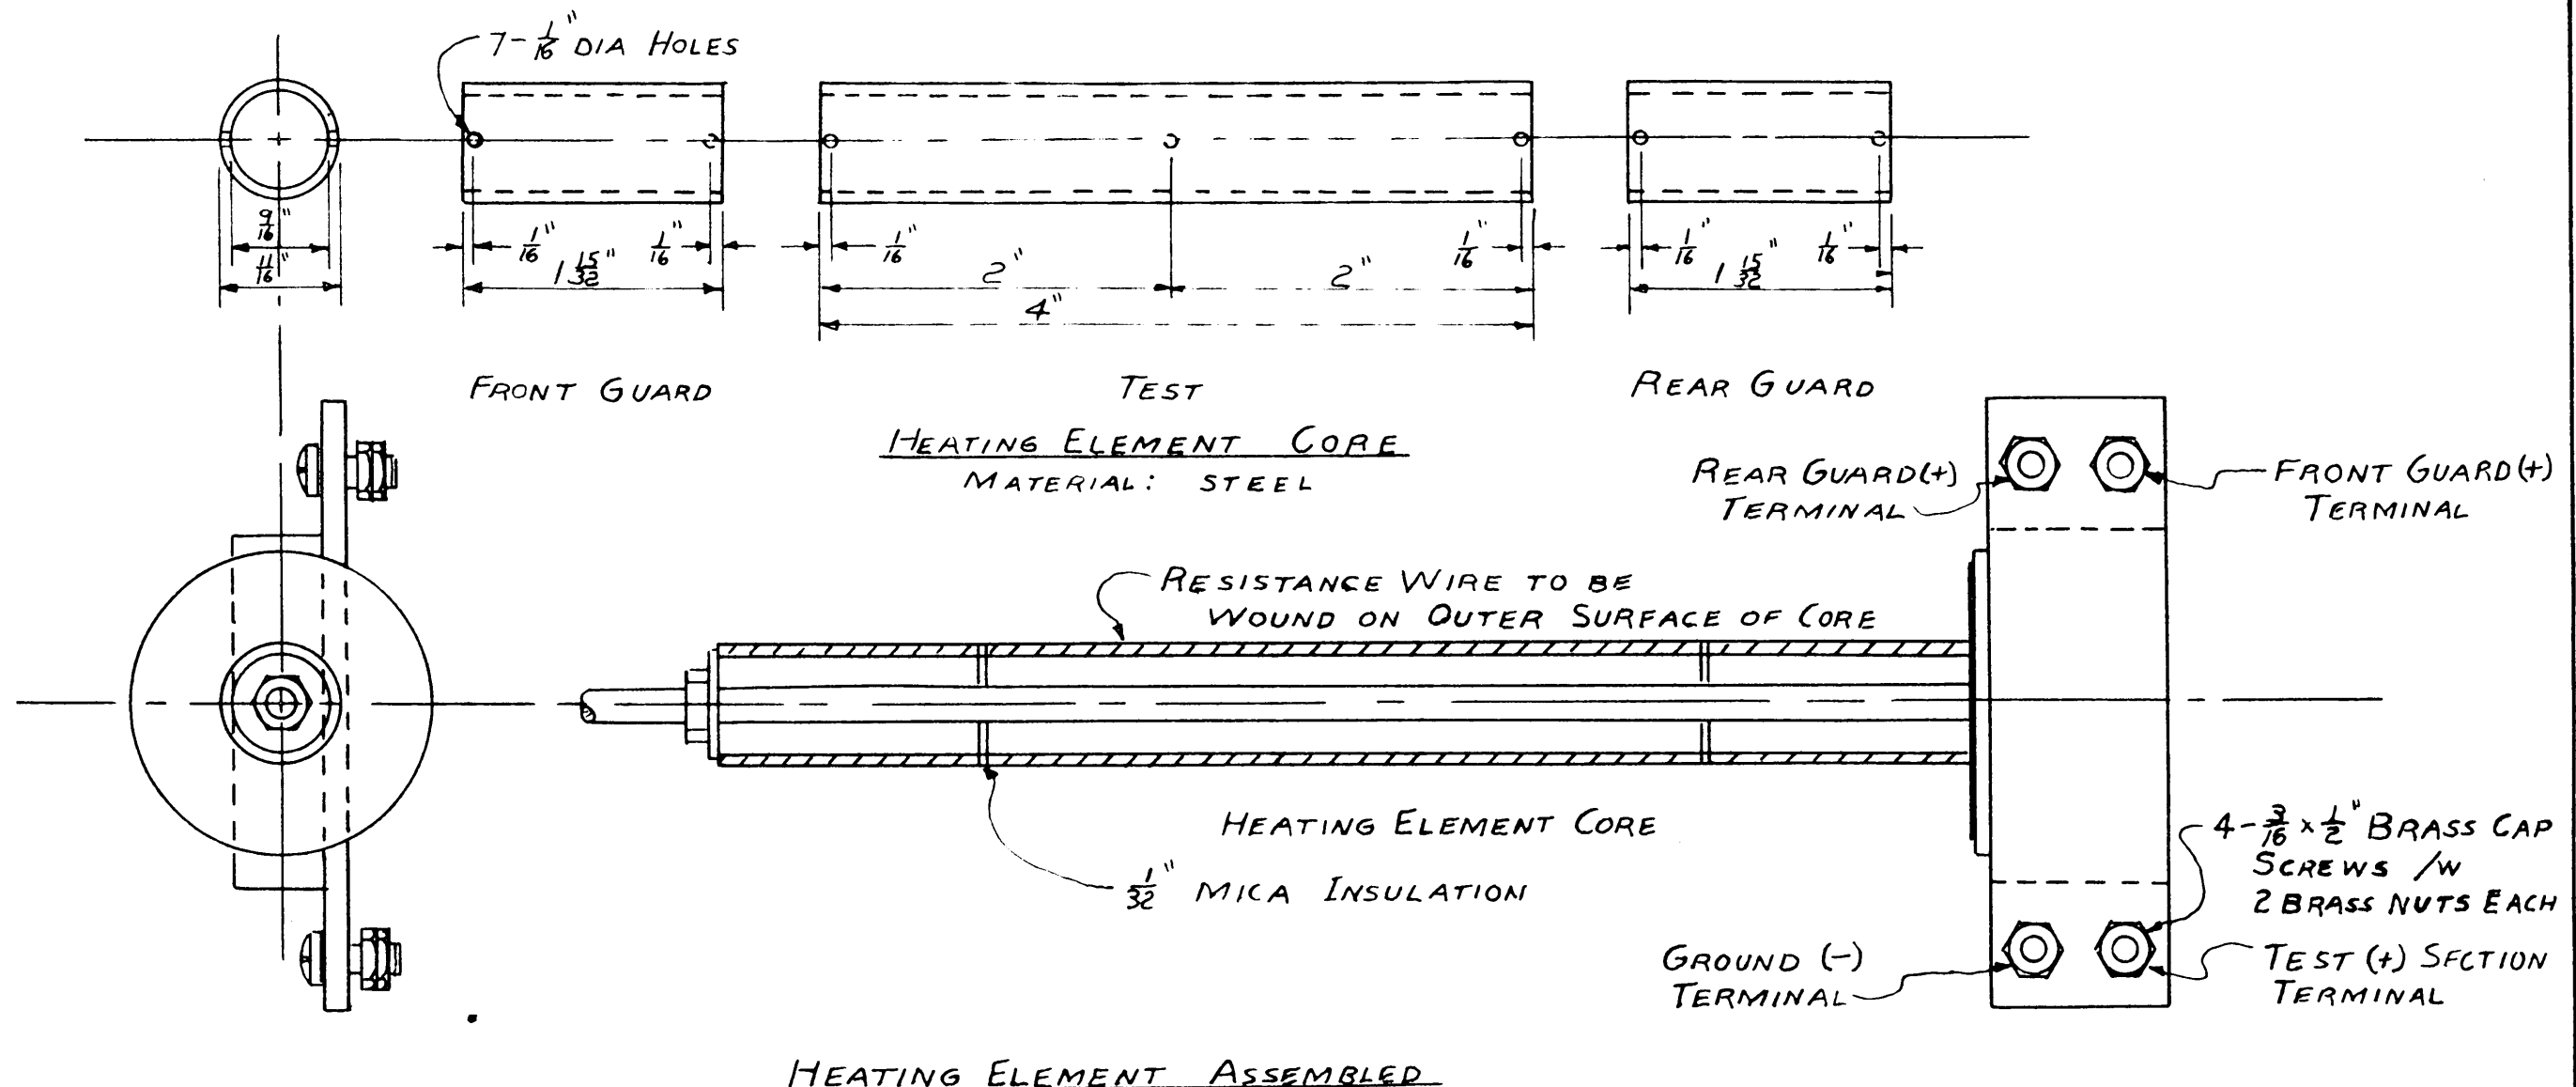 7-1/16" DIA HOLES
9/16"
11/16"
1/16"
1/16"
1 15/32"
1/16"
1/16"
2"
2"
4"
1/16"
1/16"
1 15/32"
FRONT GUARD
TEST
REAR GUARD
HEATING ELEMENT CORE
MATERIAL: STEEL
REAR GUARD(+)
TERMINAL
FRONT GUARD(+)
TERMINAL
RESISTANCE WIRE TO BE
WOUND ON OUTER SURFACE OF CORE
HEATING ELEMENT CORE
1/32" MICA INSULATION
4-3/16 x 1/2" BRASS CAP
SCREWS /W
2 BRASS NUTS EACH
GROUND (-)
TERMINAL
TEST (+) SECTION
TERMINAL
HEATING ELEMENT ASSEMBLED